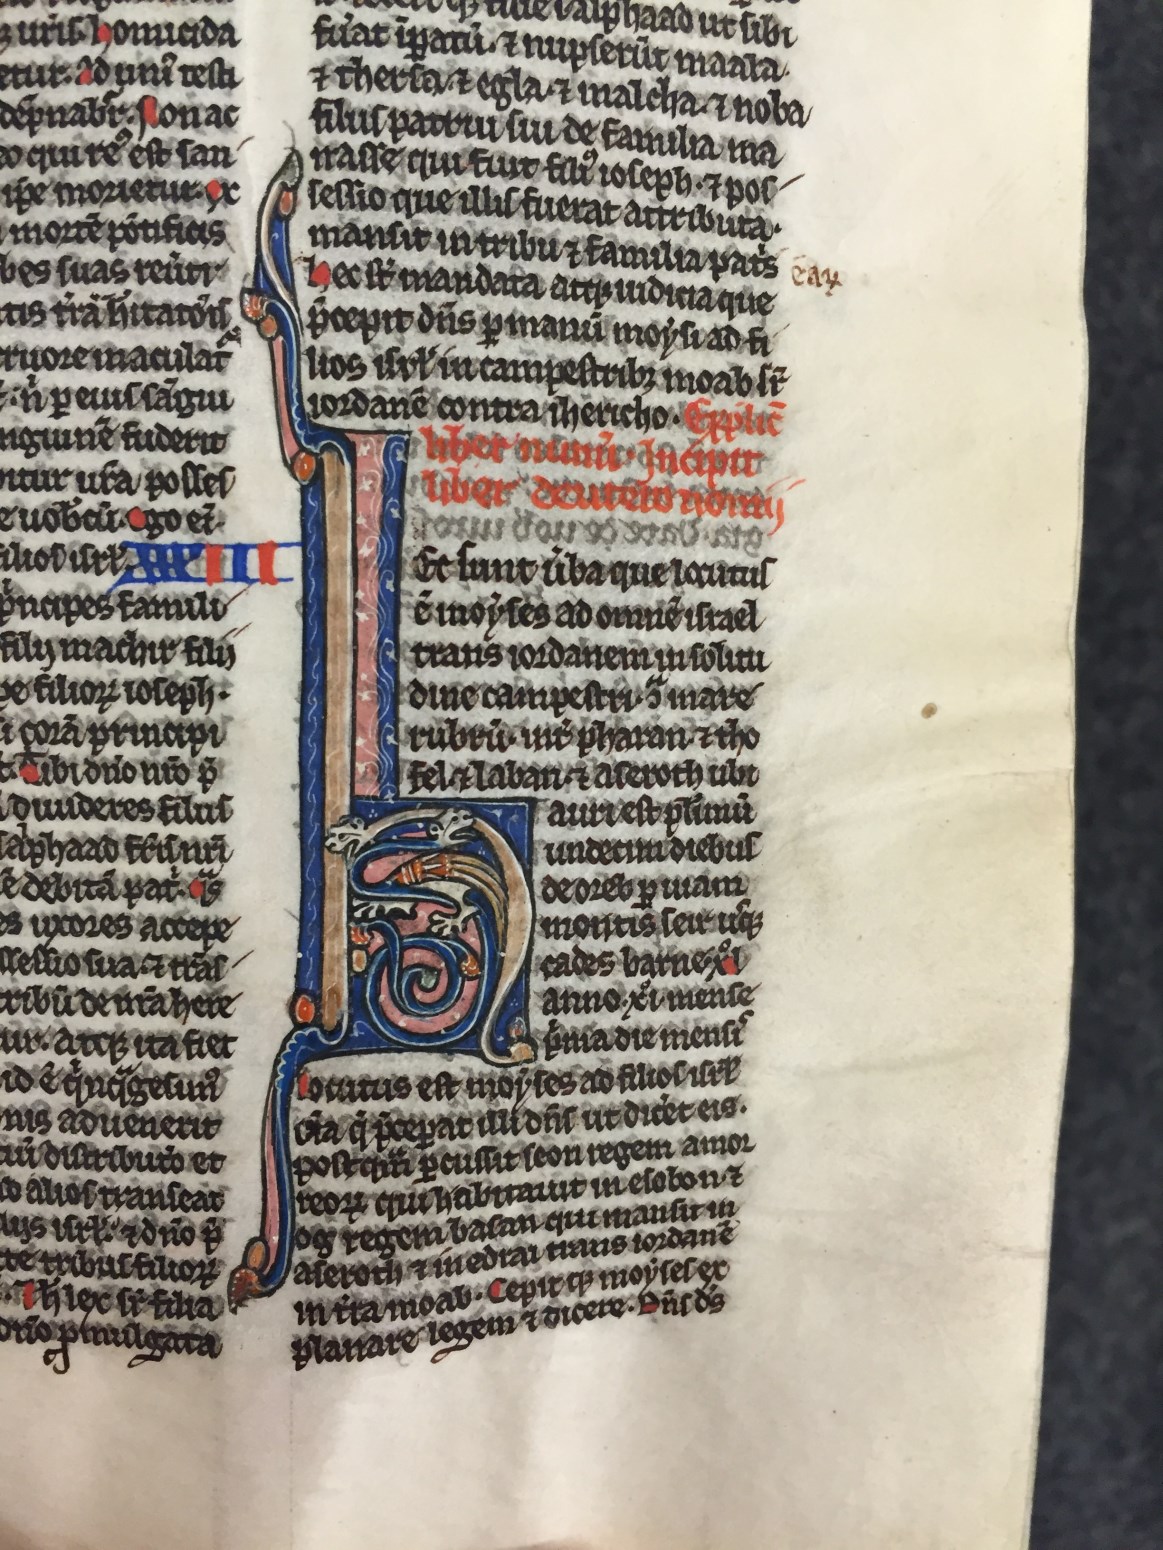 uris. homicida
etur. Ad unī testi
dēpnabr̄. Non ac
eo qui reꝰ est san
ip̄e morietur. ex
morte pōtificis
bes suas reūtr
tis trā hītatoris
cruore maculat
ꝑ eius sāgui
nguinē fuderit
ntur ur̄a posses
e uob̄cū. Ego ei
filios isrl̄. XXXVI
p̄ncipes famili
filii machir filii
pe filioꝝ ioseph.
corā principi
Tibi dn̄o nr̄o p̄
diuideres filiis
salphaad fr̄is nr̄i
debitā pat̄.
es uxores accepe
ssessio sua. ⁊ trās
tribū de nr̄a here
ur. atqꝫ ita fiet
id ē q̄nq̄gesimꝰ
nis aduenerit
distributō et
alios transeat
isrl̄. ⁊ dn̄o p̄
tribus filioꝝ
⁊ h̄ lex sr̄ filia
dn̄o ꝓmulgata
filie salphaad ut sibi
fu̅at ip̄atū. ⁊ nupserūt maala.
⁊ thersa. ⁊ egla. ⁊ malcha. ⁊ noba
filiis patrui sui de familia ma
nasse qui fuit filiꝰ ioseph. ⁊ pos
sessio que illis fuerat attributa.
mansit in tribu ⁊ familia pat̄s eaꝝ
hec sr̄ mandata atqꝫ iudicia que
p̄cepit dn̄s ꝑ manū moysi ad fi
lios isrl̄ in campestribꝫ moab sr̄
iordanē contra ihericho. Explic̄
liber numr̄i. Incipit
liber deuteronomij
h
Ec sunt ūba que locutus
ē moyses ad omnē israel
trans iordanem in solitu
dine campestri. ɔ̄ mare
rubrū. int̄ pharan. ⁊ tho
fel. ⁊ laban. ⁊ aseroth ubi
auri est pl̄imū
undecim diebus
de oreb ꝑ uiam
montis seir usqꝫ
cades barne. xlͦ
anno. xi. mense
p̄ma die mensis
locutus est moyses ad filios isrl̄
oīa q̄ p̄cepat illi dn̄s ut diceret eis.
postq̄m ꝑcussit seon regem amor
reoꝝ qui habitauit in esebon. ⁊
og regem basan qui mansit in
aseroth ⁊ in edrai trans iordanē
in tr̄a moab. Cepitqꝫ moyses ex
planare legem ⁊ dicere. Dn̄s ds̄